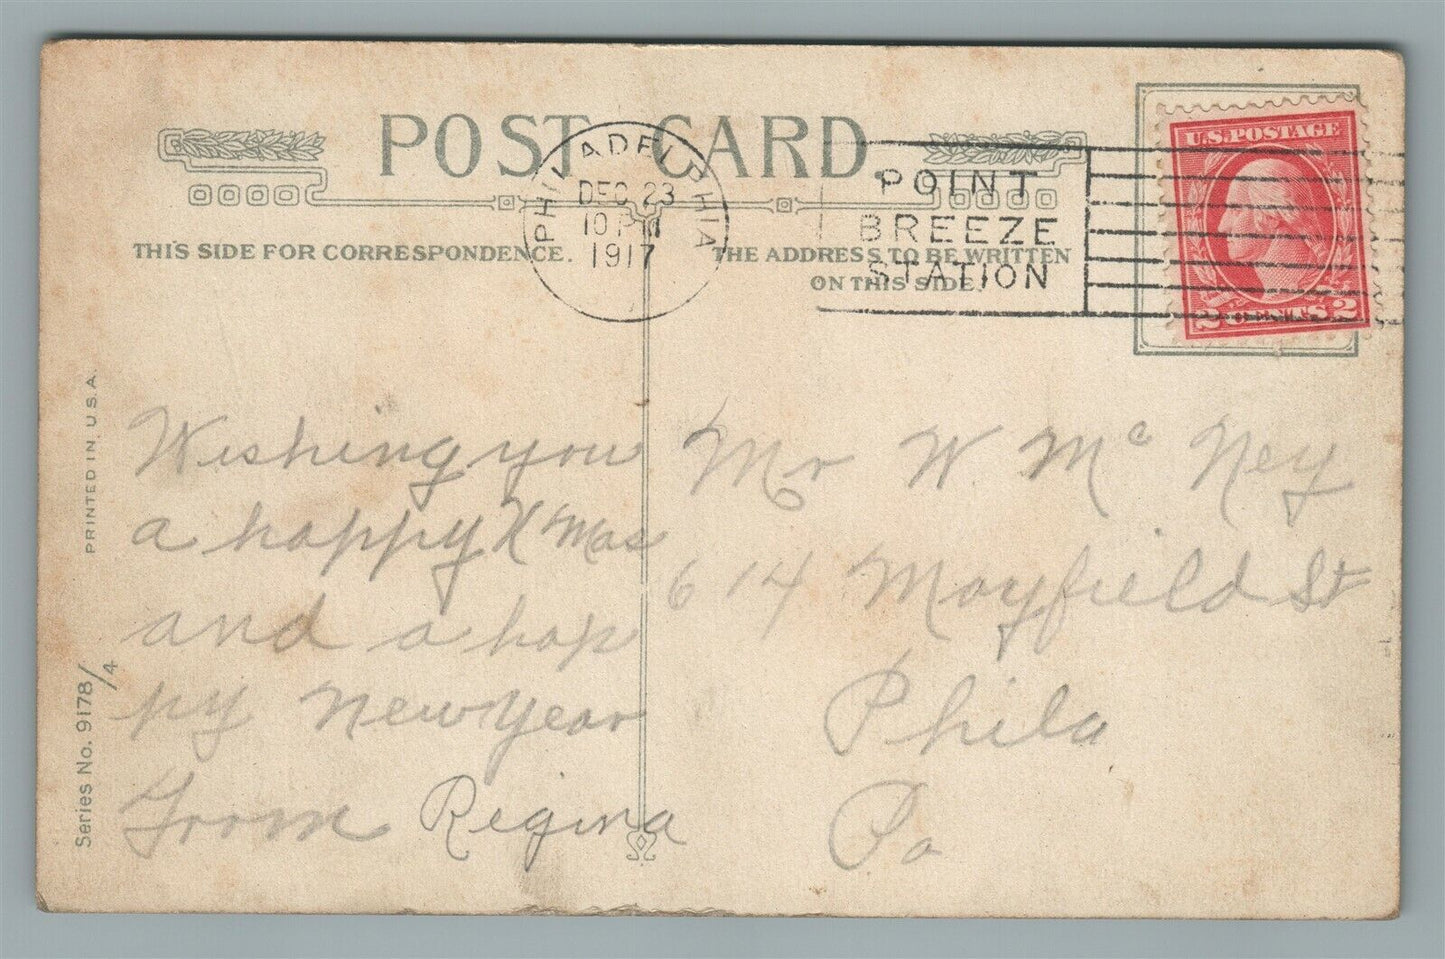 POST CARD.
THIS SIDE FOR CORRESPONDENCE.
THE ADDRESS TO BE WRITTEN
ON THIS SIDE.
PHILADELPHIA
DEC 23
10 PM
1917
POINT
BREEZE
STATION
U.S. POSTAGE
2 CENTS 2
PRINTED IN U.S.A.
Series No. 9178/4
Wishing you
a happy X Mas
and a hap
py New Year
From Regina
Mr W. Mc Ney
614 Mayfield St
Phila
Pa